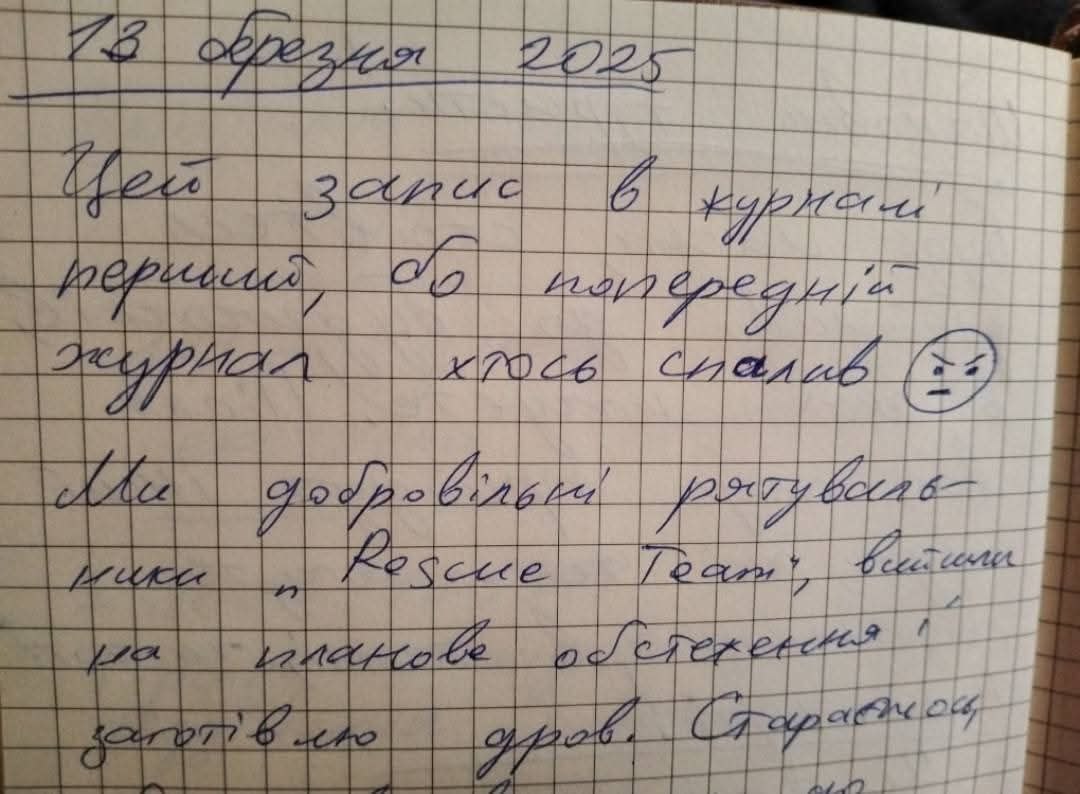 13 березня 2025
Цей запис в журналі
перший, бо попередній
журнал хтось спалив
Ми добровільні рятуваль-
ники „Rescue Team", вийшли
на планове обстеження і
заготівлю дров. Стараємось,